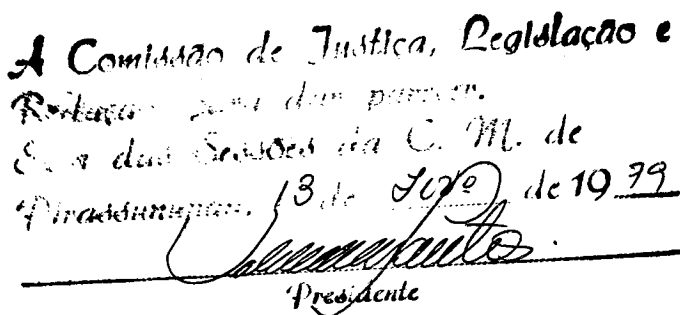 A Comissão de Justiça, Legislação e
Redação para dar parecer.
Sala das Sessões da C. M. de
Pirassununga, 13 de de 1979
Presidente